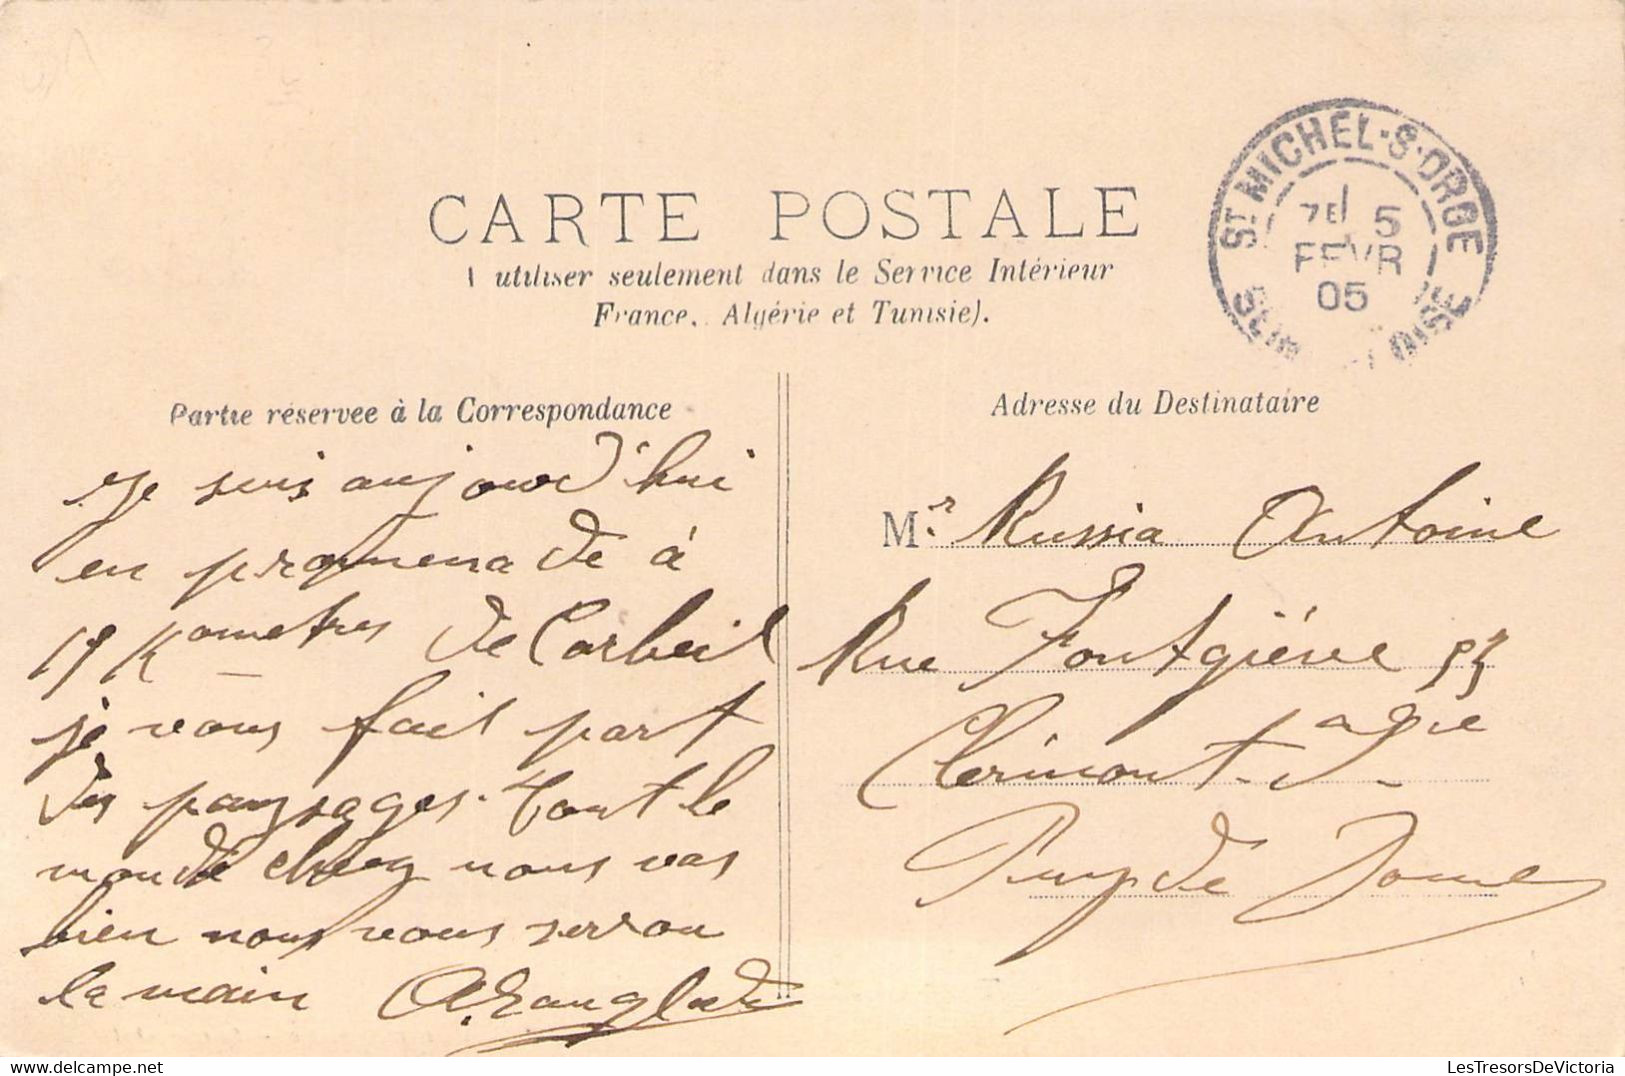 CARTE POSTALE
A utiliser seulement dans le Service Intérieur
France, Algérie et Tunisie).
ST MICHEL-S-ORGE
7E 5
FEVR
05
SEINE ET OISE
Partie réservée à la Correspondance
Je suis aujourd'hui
en promenade à
19 Kometres de Corbeil
je vous fait part
des paysages. tout le
monde chez nous vas
bien nous vous serron
la main A. Langlade
Adresse du Destinataire
Mr. Russia Antoine
Rue Fontgiéve 93
Clérmont-d-
Puy de Dome
LesTresorsDeVictoria.com